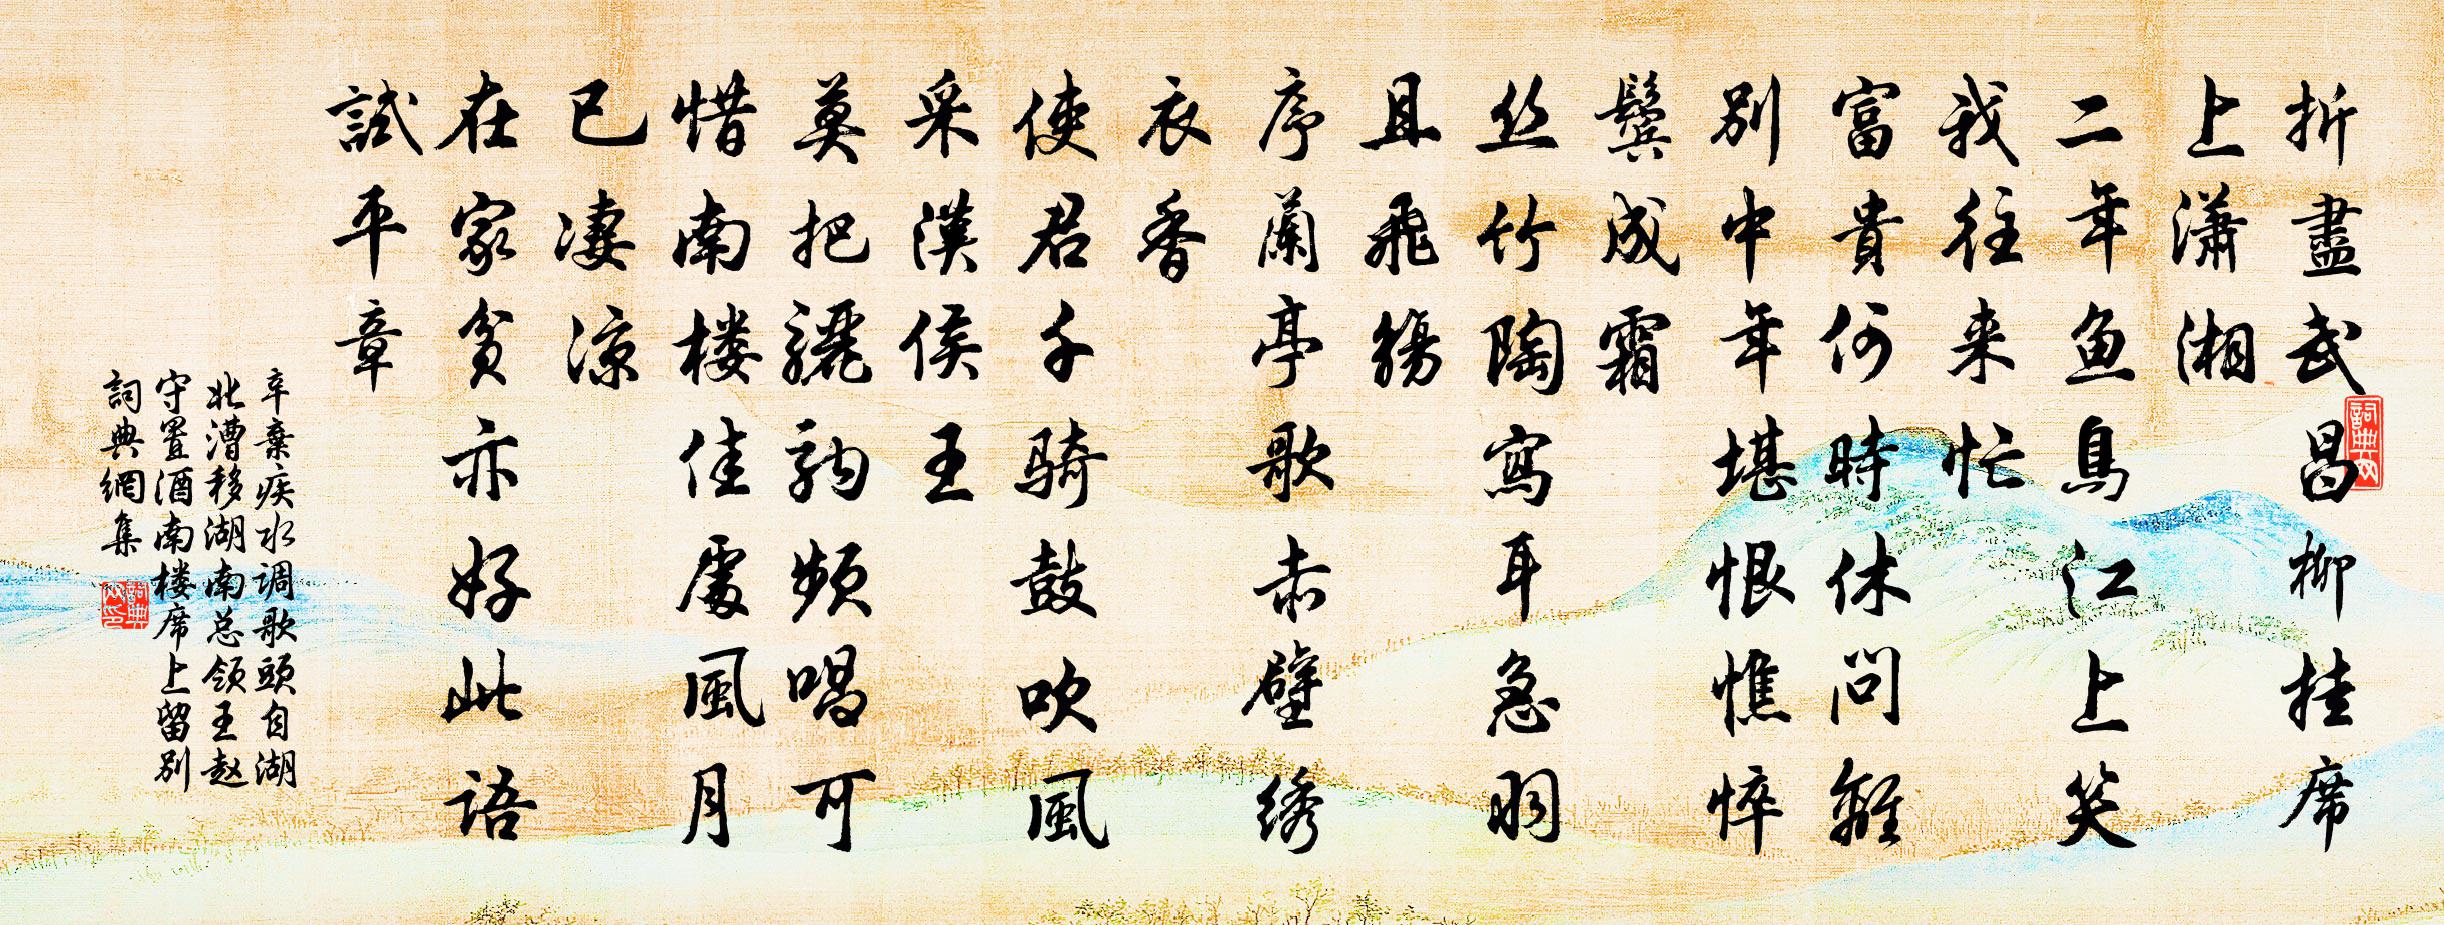 折盡武昌柳挂席
上瀟湘
二年魚鳥江上笑
我往来忙
富貴何時休問離
别中年堪恨憔悴
鬓成霜
丝竹陶寫耳急羽
且飛觴
序蘭亭歌赤壁绣
衣香
使君千骑鼓吹風
采漢侯王
莫把驪駒频唱可
惜南楼佳處風月
已淒涼
在家貧亦好此语
試平章
辛棄疾水调歌頭自湖
北漕移湖南总领王赵
守置酒南楼席上留别
詞典網集
詞典网
詞典网印